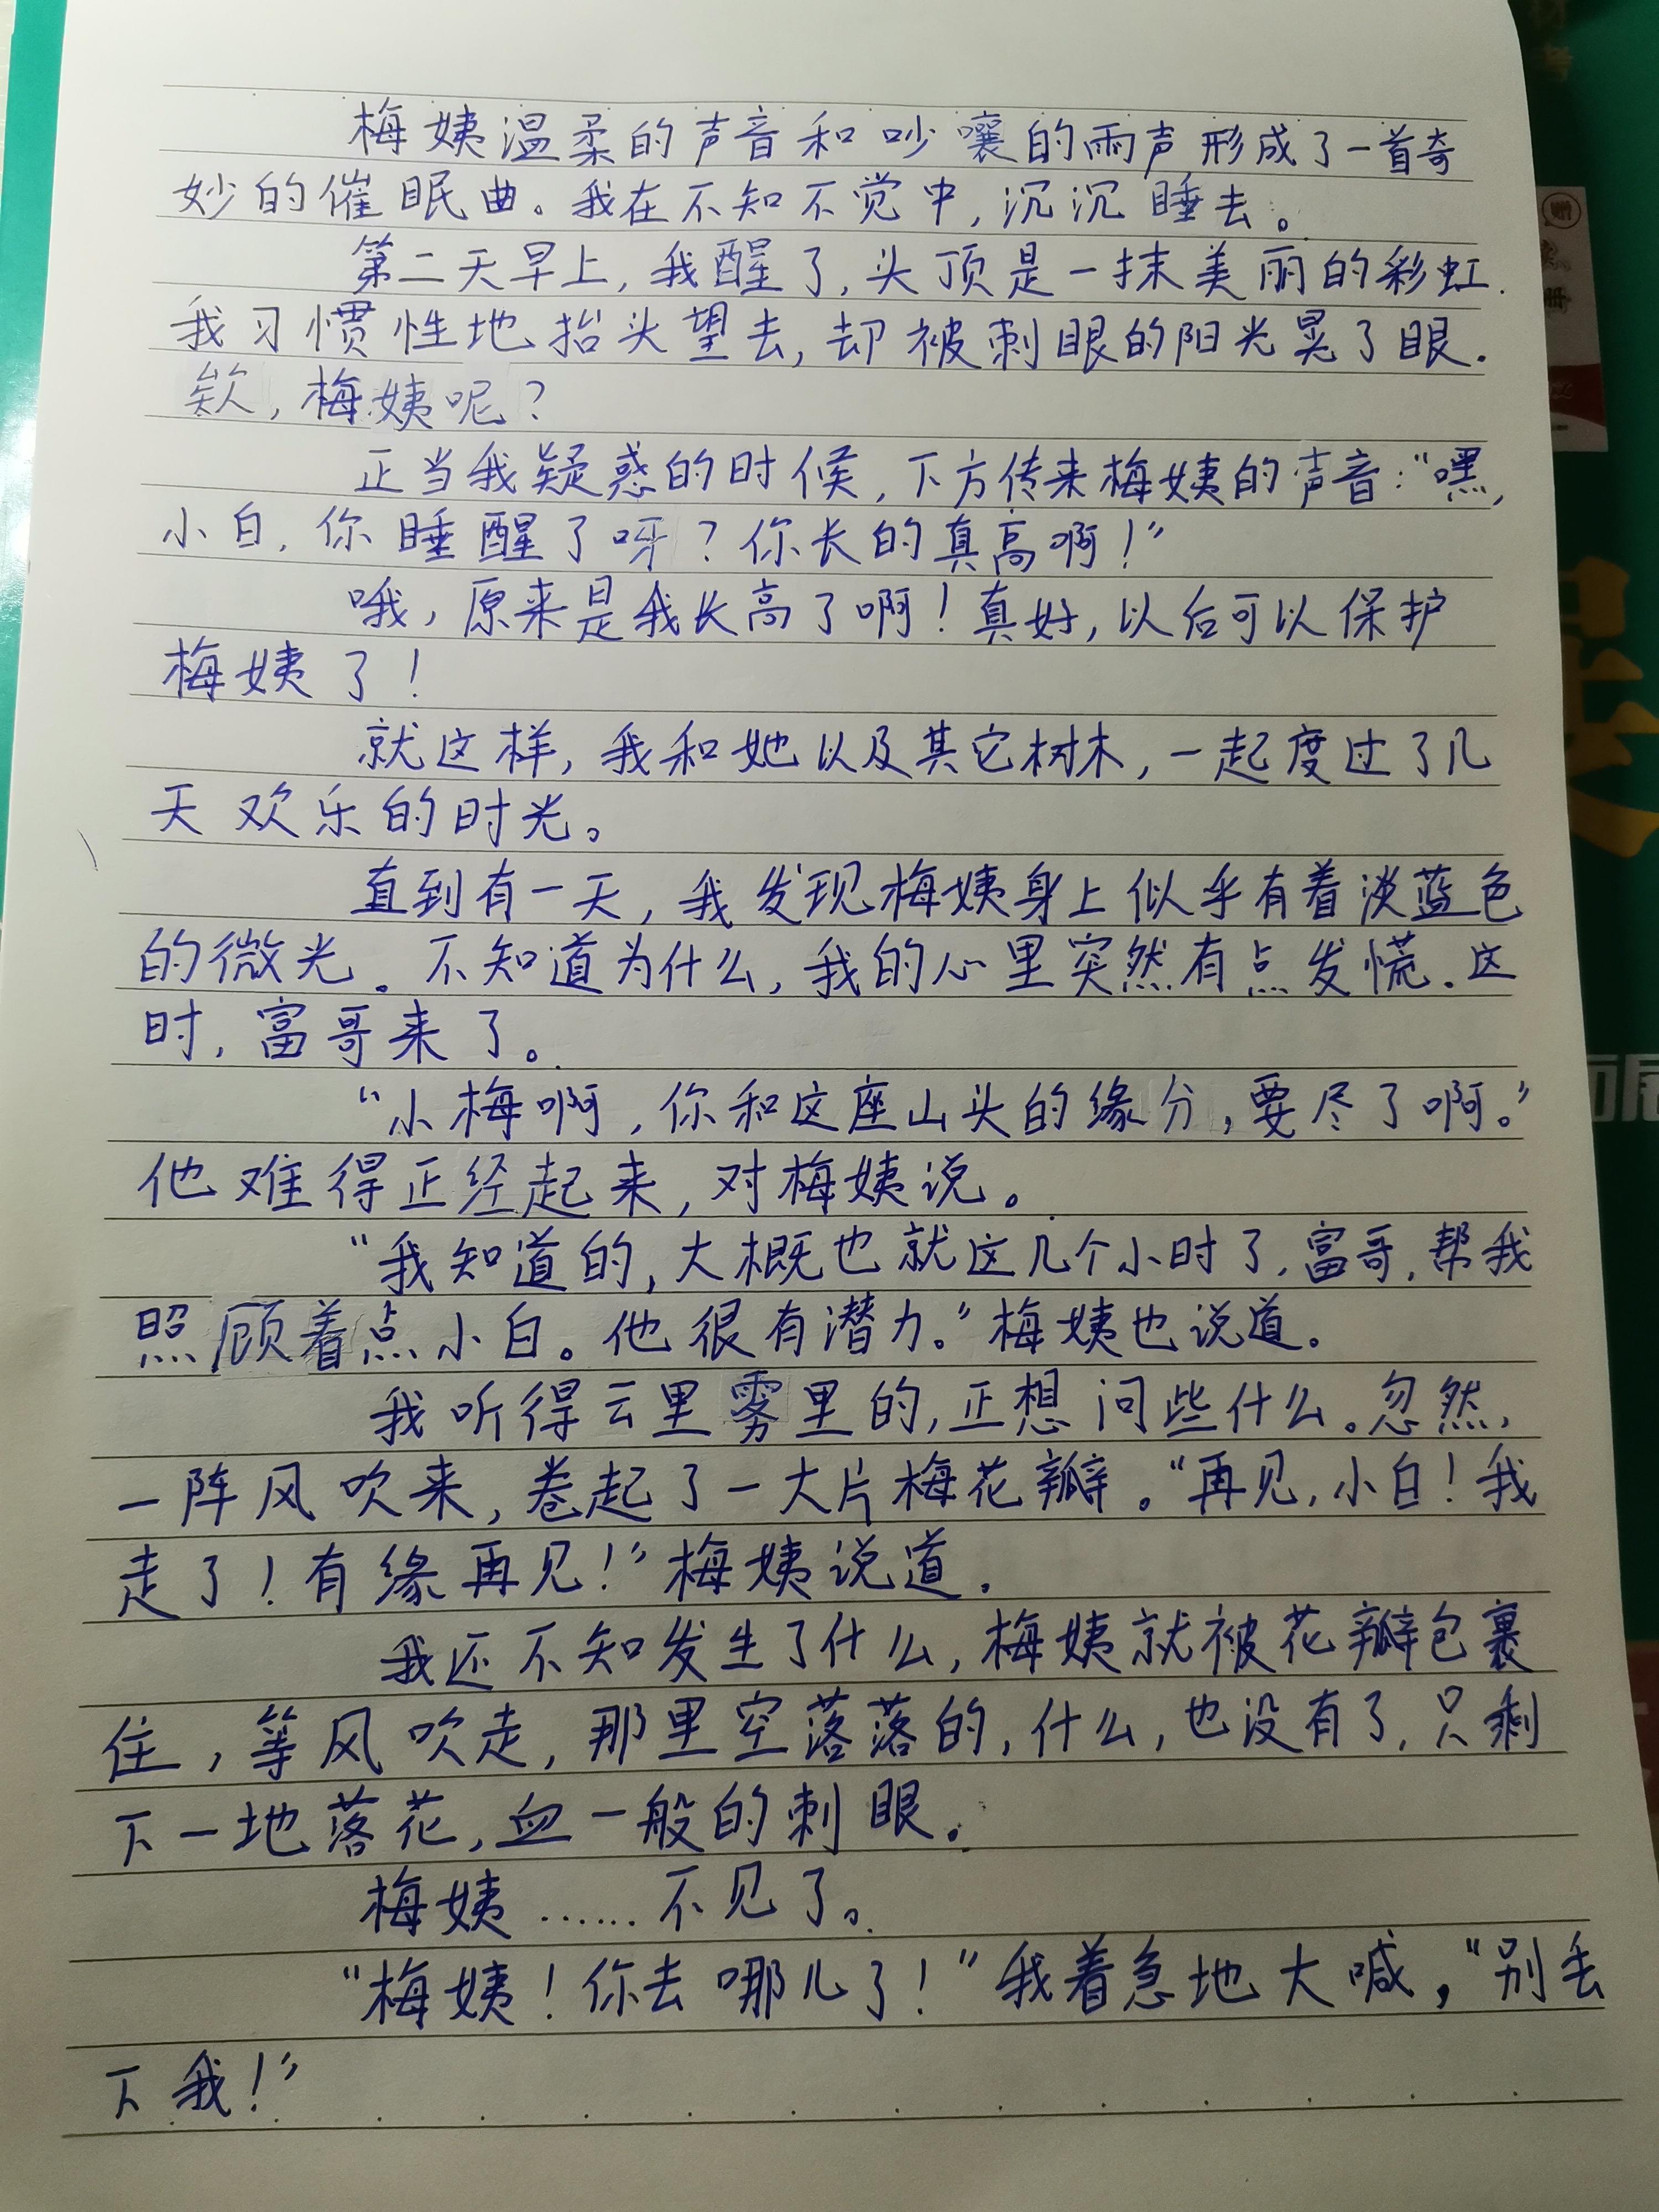 梅姨温柔的声音和吵嚷的雨声形成了一首奇
妙的催眠曲。我在不知不觉中,沉沉睡去。
第二天早上,我醒了,头顶是一抹美丽的彩虹.
我习惯性地抬头望去,却被刺眼的阳光晃了眼.
欸,梅姨呢?
正当我疑惑的时候,下方传来梅姨的声音:“嘿,
小白,你睡醒了呀?你长的真高啊!”
哦,原来是我长高了啊!真好,以后可以保护
梅姨了!
就这样,我和她以及其它树木,一起度过了几
天欢乐的时光。
直到有一天,我发现梅姨身上似乎有着淡蓝色
的微光。不知道为什么,我的心里突然有点发慌.这
时,富哥来了。
“小梅啊,你和这座山头的缘分,要尽了啊。”
他难得正经起来,对梅姨说。
“我知道的,大概也就这几个小时了,富哥,帮我
照顾着点小白。他很有潜力。”梅姨也说道。
我听得云里雾里的,正想问些什么。忽然,
一阵风吹来,卷起了一大片梅花瓣。“再见,小白!我
走了!有缘再见!”梅姨说道.
我还不知发生了什么,梅姨就被花瓣包裹
住,等风吹走,那里空落落的,什么,也没有了,只剩
下一地落花,血一般的刺眼。
梅姨……不见了。
“梅姨!你去哪儿了!”我着急地大喊,“别丢
下我!”